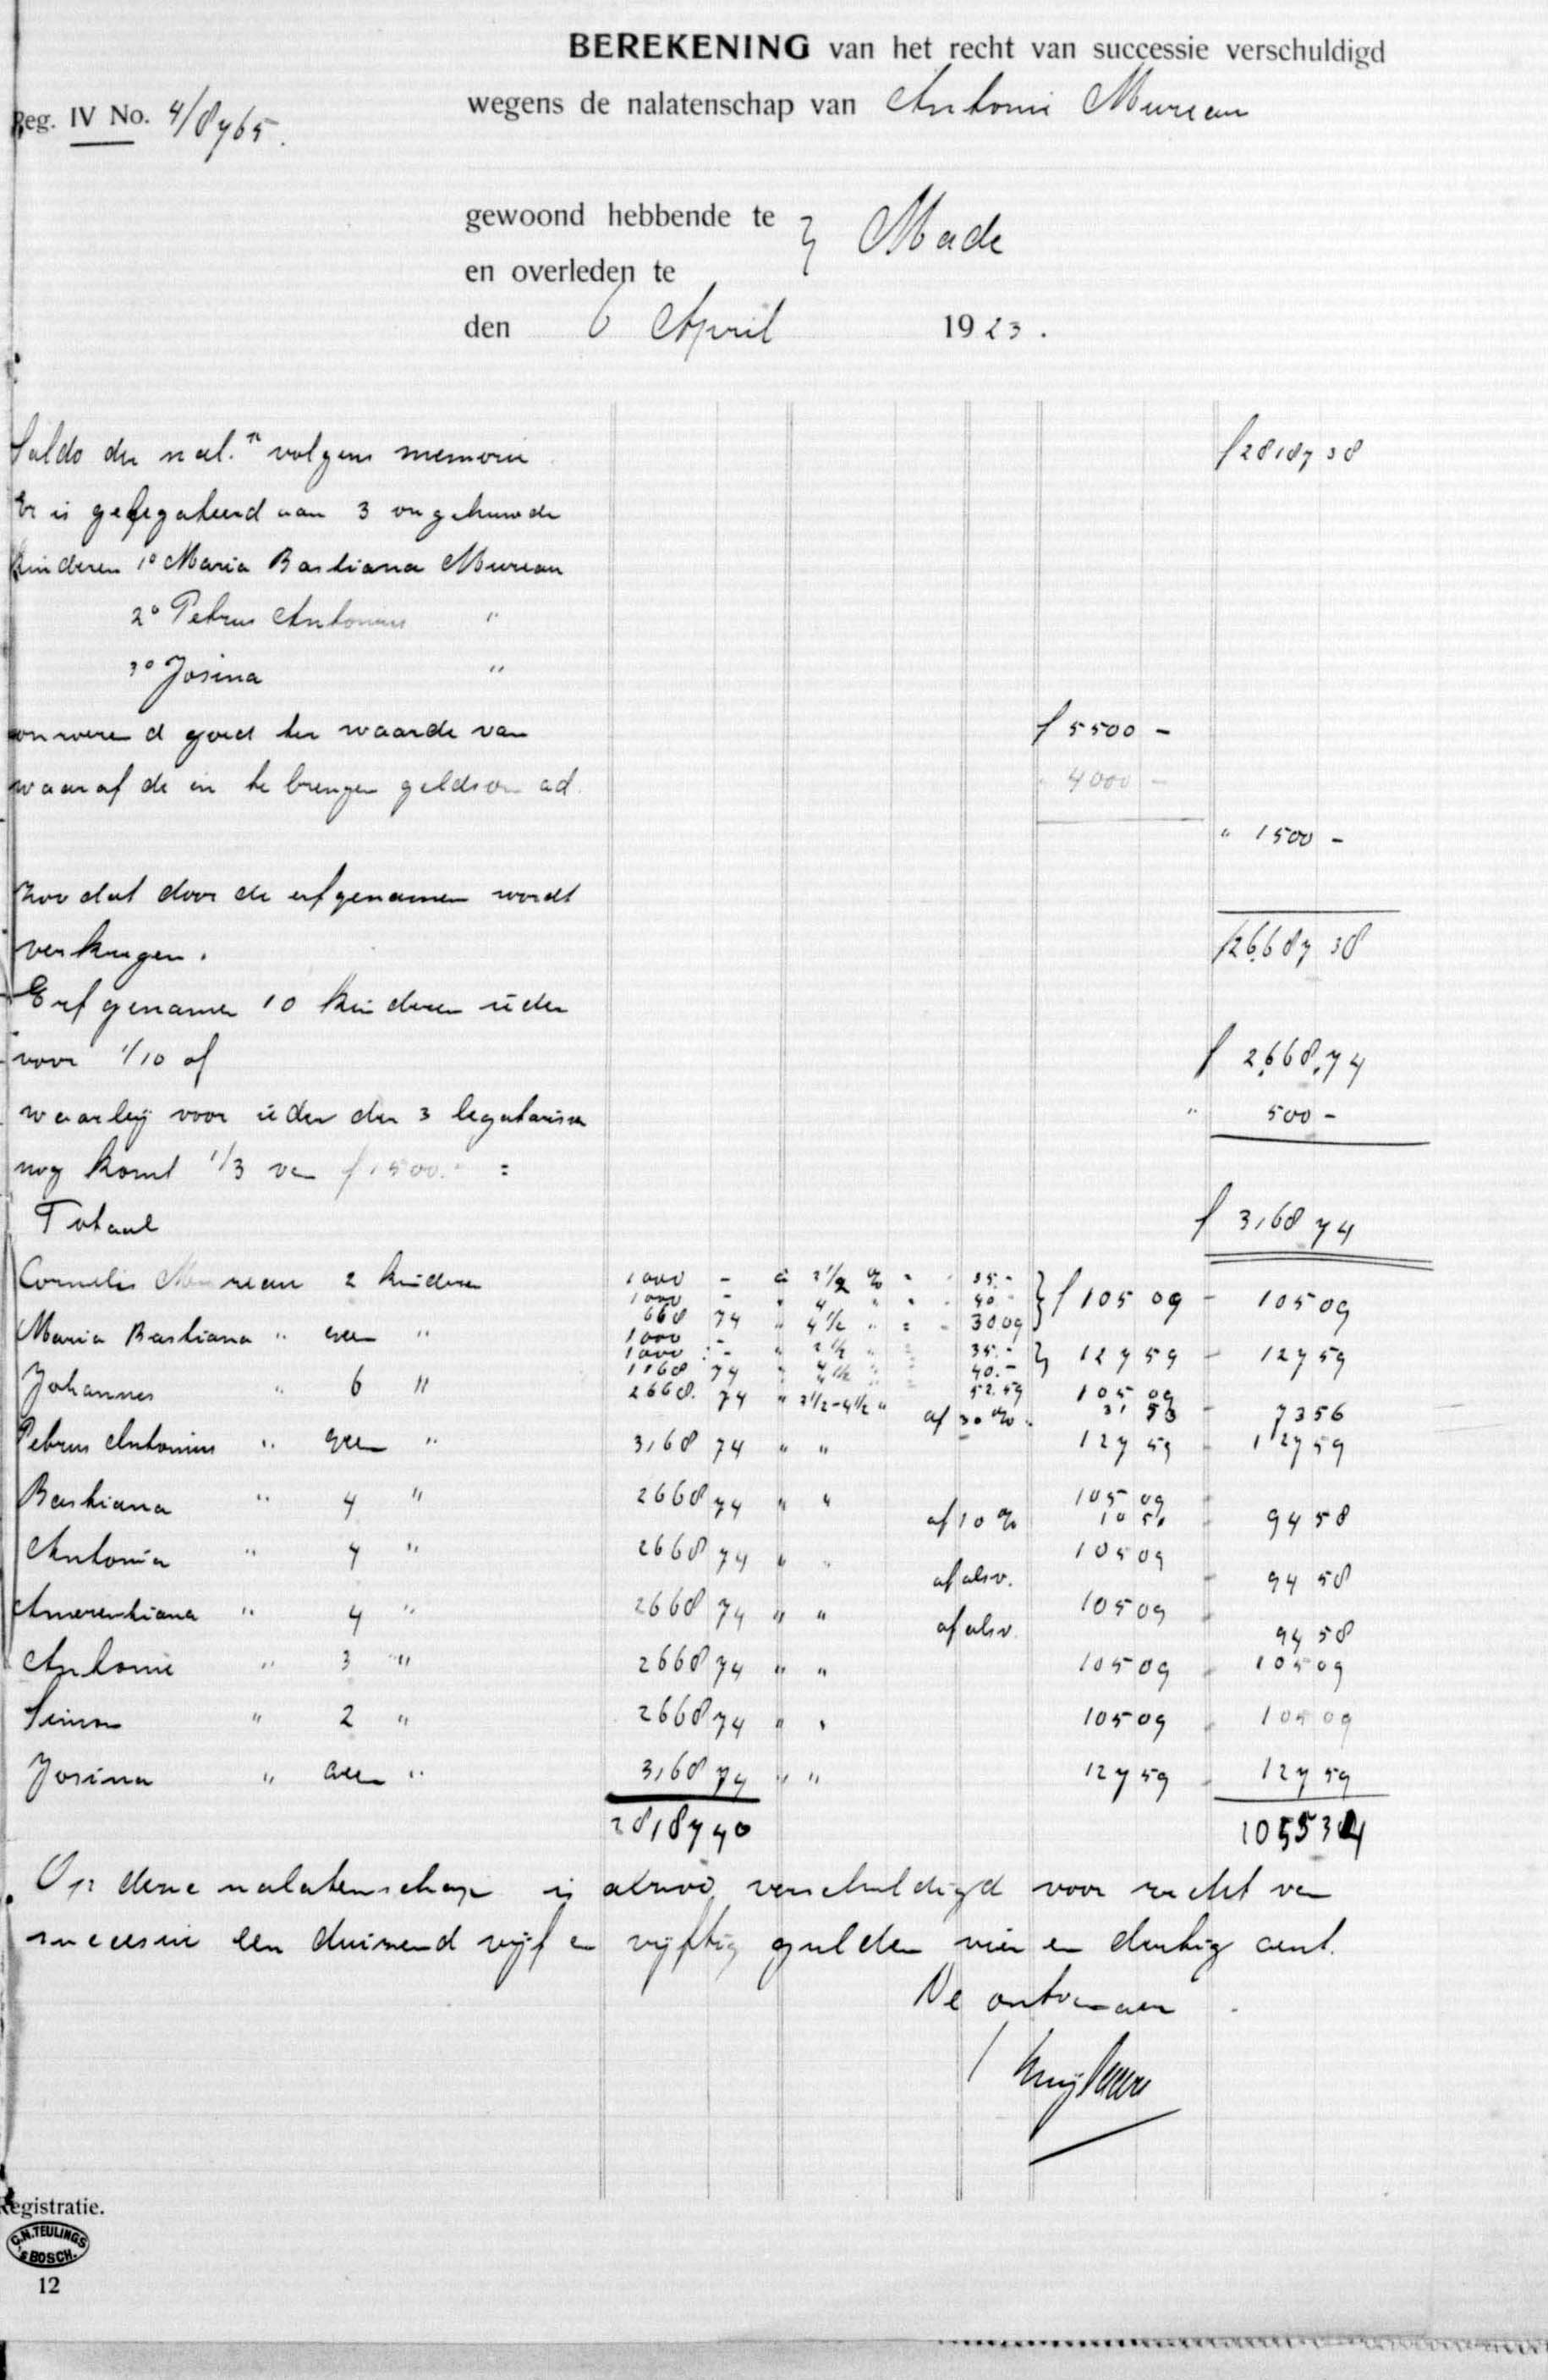 BEREKENING van het recht van successie verschuldigd
Reg. IV No. 4/8765.
wegens de nalatenschap van Antonie Mureau
gewoond hebbende te } Made
en overleden te
den 6 April 1923.
Saldo der nal.n volgens memorie f 28187 38
Er is gelegateerd aan 3 ongehuwde
kinderen 1o Maria Bastiana Mureau
2o Petrus Antonius "
3o Josina "
onroerend goed ter waarde van f 5500 -
waaraf de in te brengen geldsom ad. " 4000 -
" 1500 -
zoodat door de erfgenamen wordt
verkregen. f 26687 38
Erfgenamen 10 kinderen ieder
voor 1/10 of f 2668,74
waarbij voor ieder der 3 legatarissen " 500 -
nog komt 1/3 van f 1500.- =
Totaal f 3168 74
Cornelis Mureau 2 kinderen 1000 - à 3 1/2 % " 35.- } f 105 09 - 105 09
1000 - " 4 " " 40.-
668 74 " 4 1/2 " = 30 09
Maria Bastiana " geen " 1000 - " 3 1/2 " " 35.- } 127 59 - 127 59
1000 - " 4 " " 40.-
1168 74 " 4 1/2 " " 52.59
Johannes " 6 " 2668.74 " 3 1/2 - 4 1/2 " 105 09
af 30 % 31 53 - 73 56
Petrus Antonius " geen " 3168 74 " " 127 59 - 127 59
Bastiana " 4 " 2668 74 " " 105 09
af 10 % 10 51 - 94 58
Antonia " 4 " 2668 74 " " 105 09
af alsv. - 94 58
Amerentiana " 4 " 2668 74 " " 105 09
af alsv. - 94 58
Antonie " 3 " 2668 74 " " 105 09 - 105 09
Simon " 2 " 2668 74 " " 105 09 - 105 09
Josina " geen " 3168 74 " " 127 59 - 127 59
28187 40 1055 34
Op deze nalatenschap is alzoo verschuldigd voor recht van
successie een duizend vijf en vijftig gulden vier en dertig cent.
De ontvanger
Registratie.
C.N. TEULINGS
's BOSCH.
12